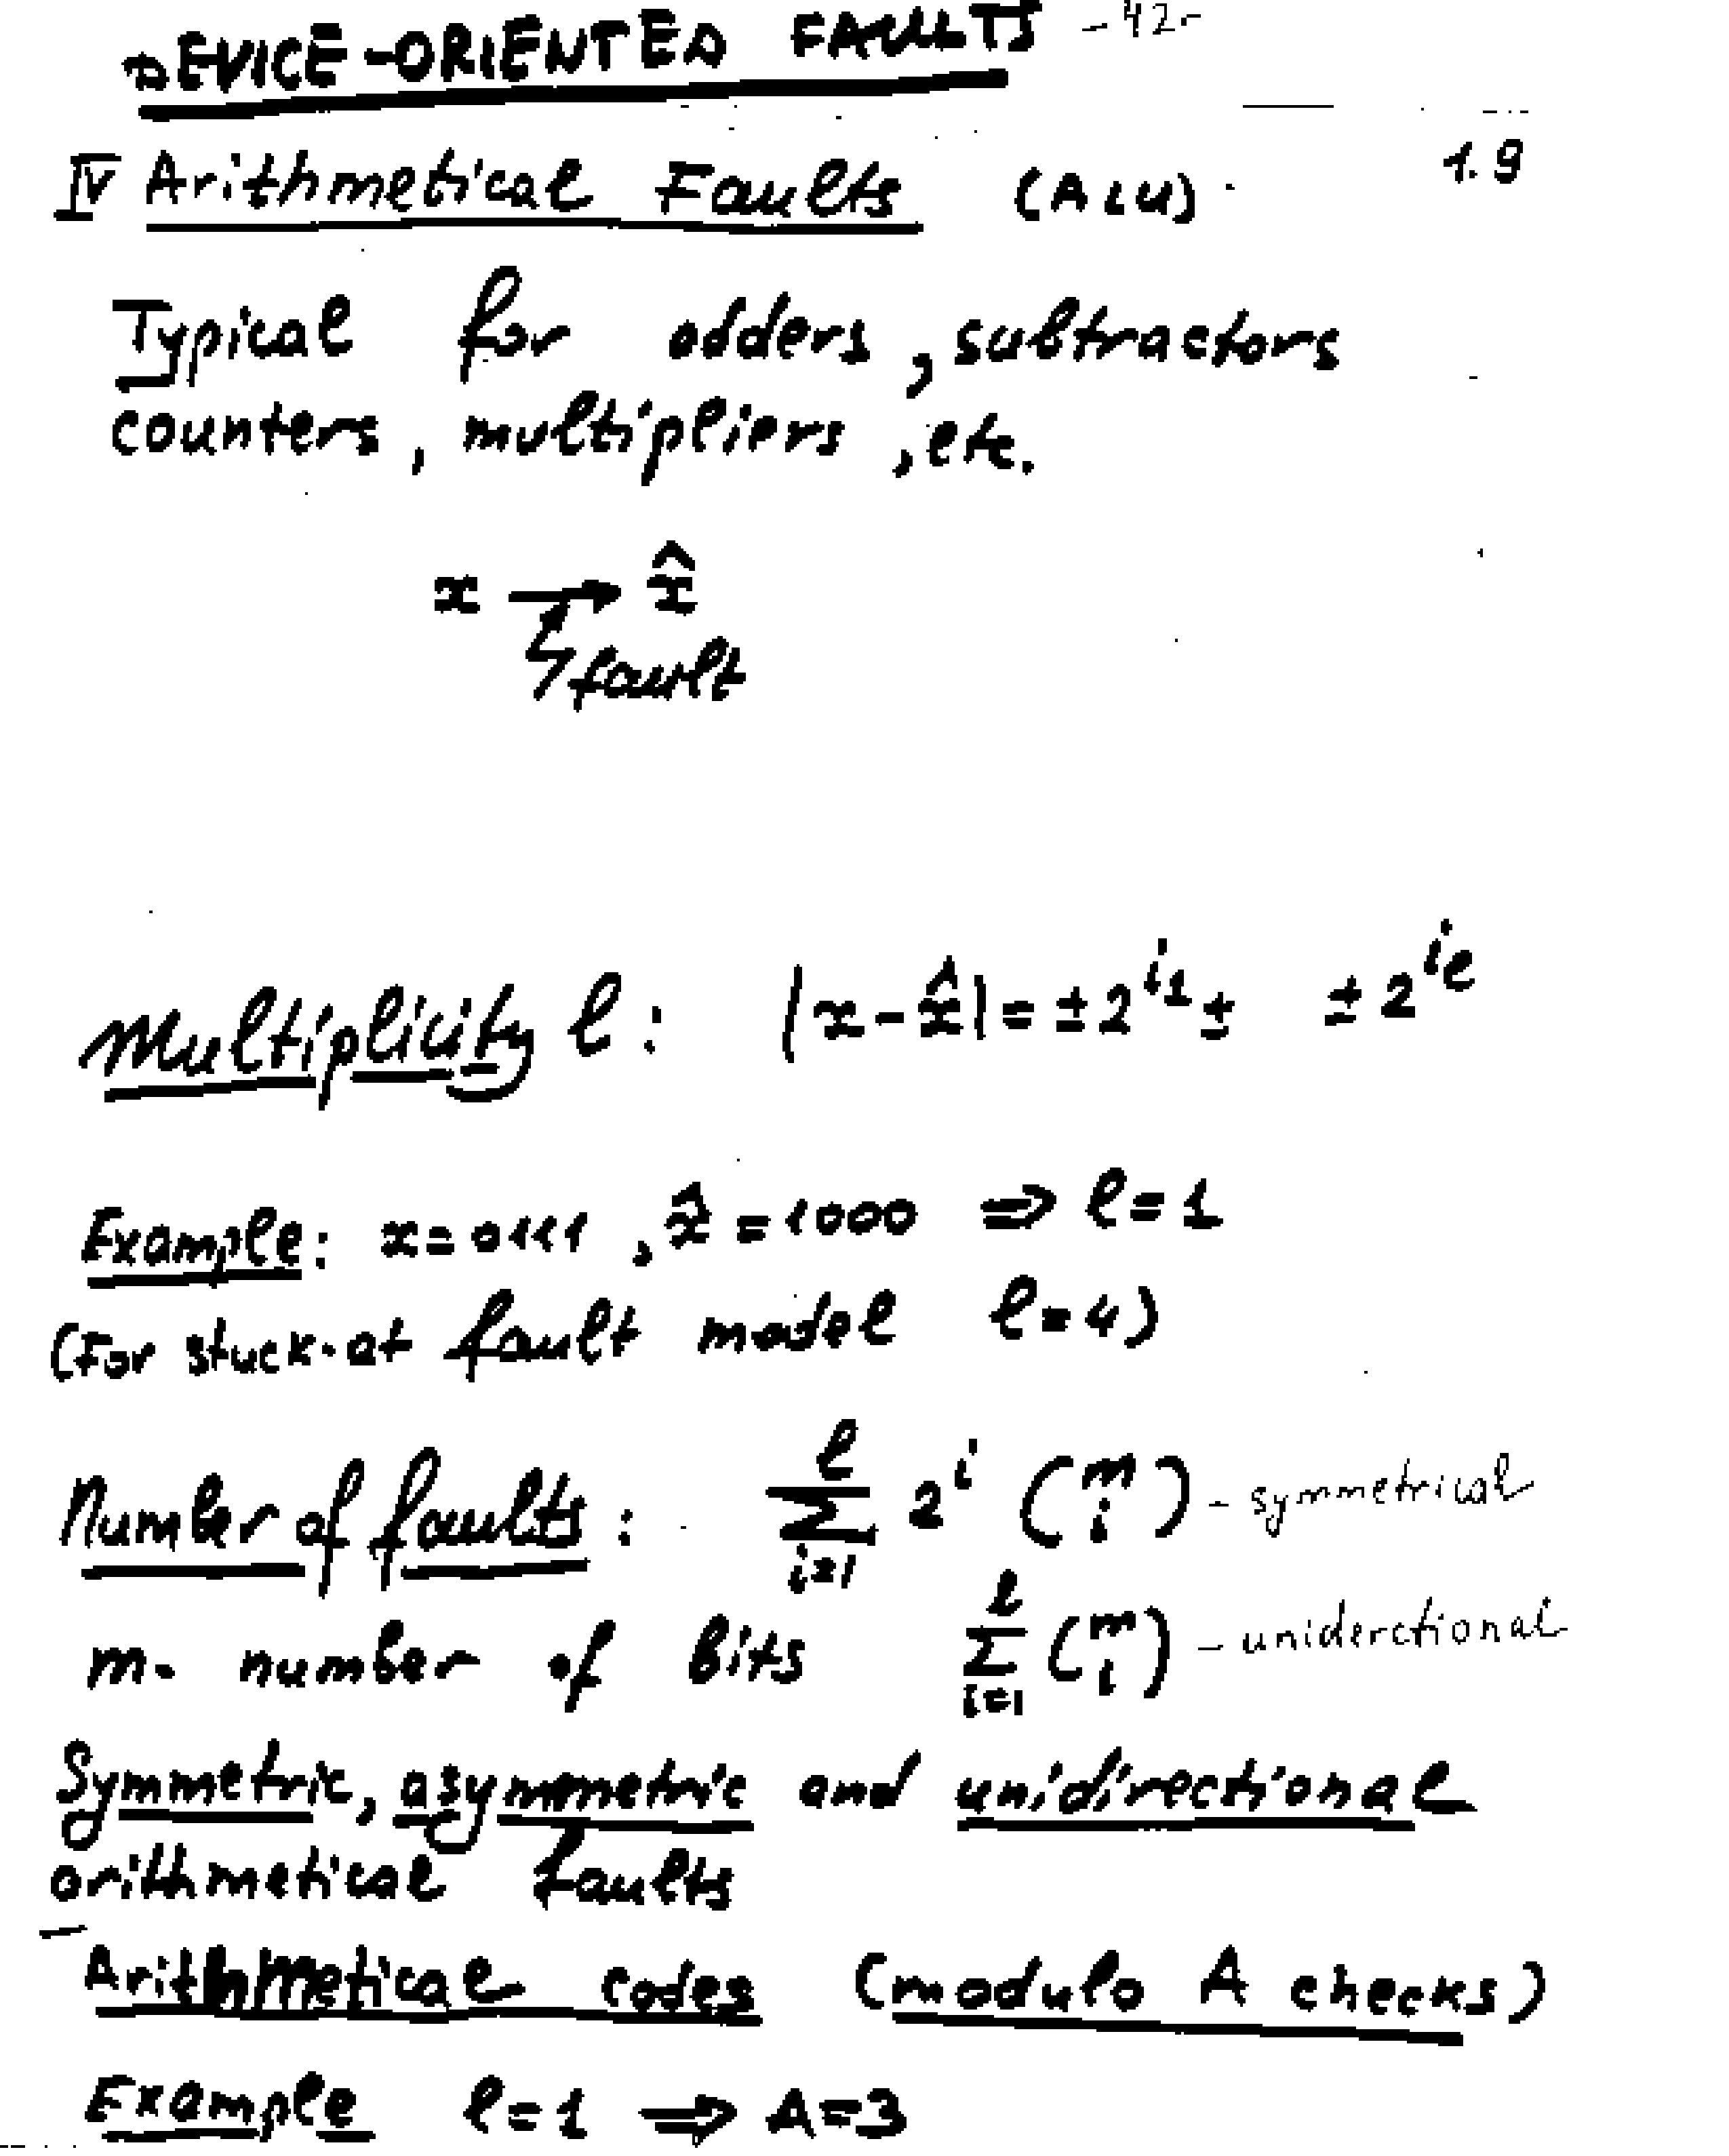 DEVICE-ORIENTED FAULTS -42-
IV Arithmetical Faults (ALU) 1.9
Typical for adders, subtractors
counters, multipliers, etc.
x → x̂
fault
Multiplicity l: |x-x̂| = ±2^{i_1} ± ±2^{i_l}
Example: x=0111, x̂=1000 ⇒ l=1
(For stuck-at fault model l=4)
Number of faults: ∑_{i=1}^{l} 2^i (m i) - symmetrical
m- number of bits ∑_{i=1}^{l} (m i) - uniderctional
Symmetric, asymmetric and unidirectional
arithmetical faults
Arithmetical codes (modulo A checks)
Example l=1 ⇒ A=3